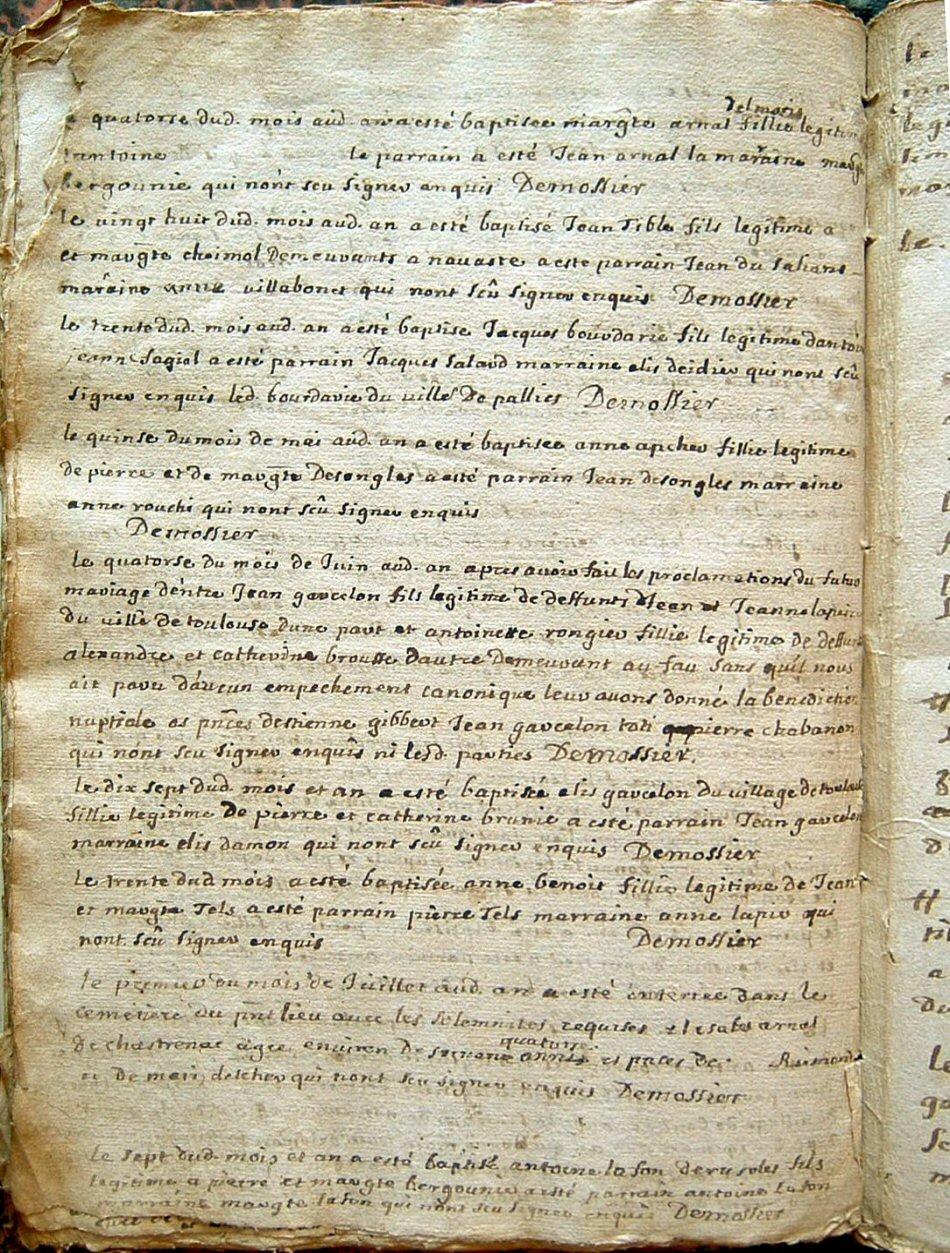 delmaris
quatorse dud. mois aud. an a esté baptisée margte arnal fillie legitim
antoine le parrain a esté Jean arnal la maraine marg
bergounie qui nont sceu signer enquis Demossier
le vingt huit dud. mois aud. an a esté baptisé Jean Tible fils legitime a
et margte Demeurants a a esté parrain Jean du
maraine villabonet qui nont sçû signer enquis Demossier
le trente dud. mois aud. an a esté baptise Jacques bourdarie fils legitime dantoi
jeanne Sagiol a esté parrain Jacques Salavd marraine elis deidier qui nont sçû
signer enquis led. bourdarie du villÉ De pallies Demossier
le quinse du mois de mai aud. an a esté baptisee anne apcher fillie legitime
de pierre et de margte Desongles a esté parrain Jean desongles marraine
anne rouchi qui nont sçû signer enquis
Demossier
le quatorse du mois de Juin aud. an apres avoir fait les proclamations du futur
mariage déntre Jean garcelon fils legitime de deffunts Jean et Jeanne lapir
du villÉ de toulouse dune part et antoinette rongier fillie legitime de deffunt
alexandre et catherine brousse dautre Demeurant au fau sans quil nous
ait paru dáucun empechement canonique leur avons donné la benediction
nuptiale es pnces destienne gibbert Jean garcelon tati pierre chabanon
qui nont seu signer enquis ni lesd. parties Demossier.
le dix sept dud. mois et an a esté baptisée elis garcelon du village de toulouse
fillie legitime De pierre et catherine brunie a esté parrain Jean garcelon
marraine elis damon qui nont sçû signer enquis Demossier
le trente dud mois a esté baptisée anne benoit fillie legitime de Jean
et margte Tels a esté parrain pierre Tels marraine anne lapir qui
nont sçû signer enquis Demossier
le premier du mois de Juillet aud. an a esté enterree dans le
cemetiere du pnt lieu avec les solemnites requises elisabet arnal
quatorse
de chastrenac agee environ de annés et pnces de Raimond
et De qui nont seu signer enquis Demossier
le sept dud. mois et an a esté baptisé antoine lafon derusoles fils
legitime a pierre et margte bergounie a esté parrain antoine lafon
marraine margte lafon qui nont seu signer enquis Demossier